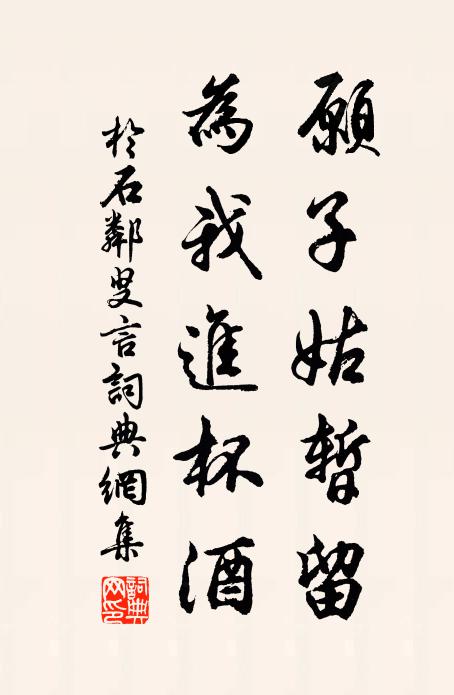 願子姑暫留
為我進杯酒
於石鄰叟言詞典網集
詞典
网印